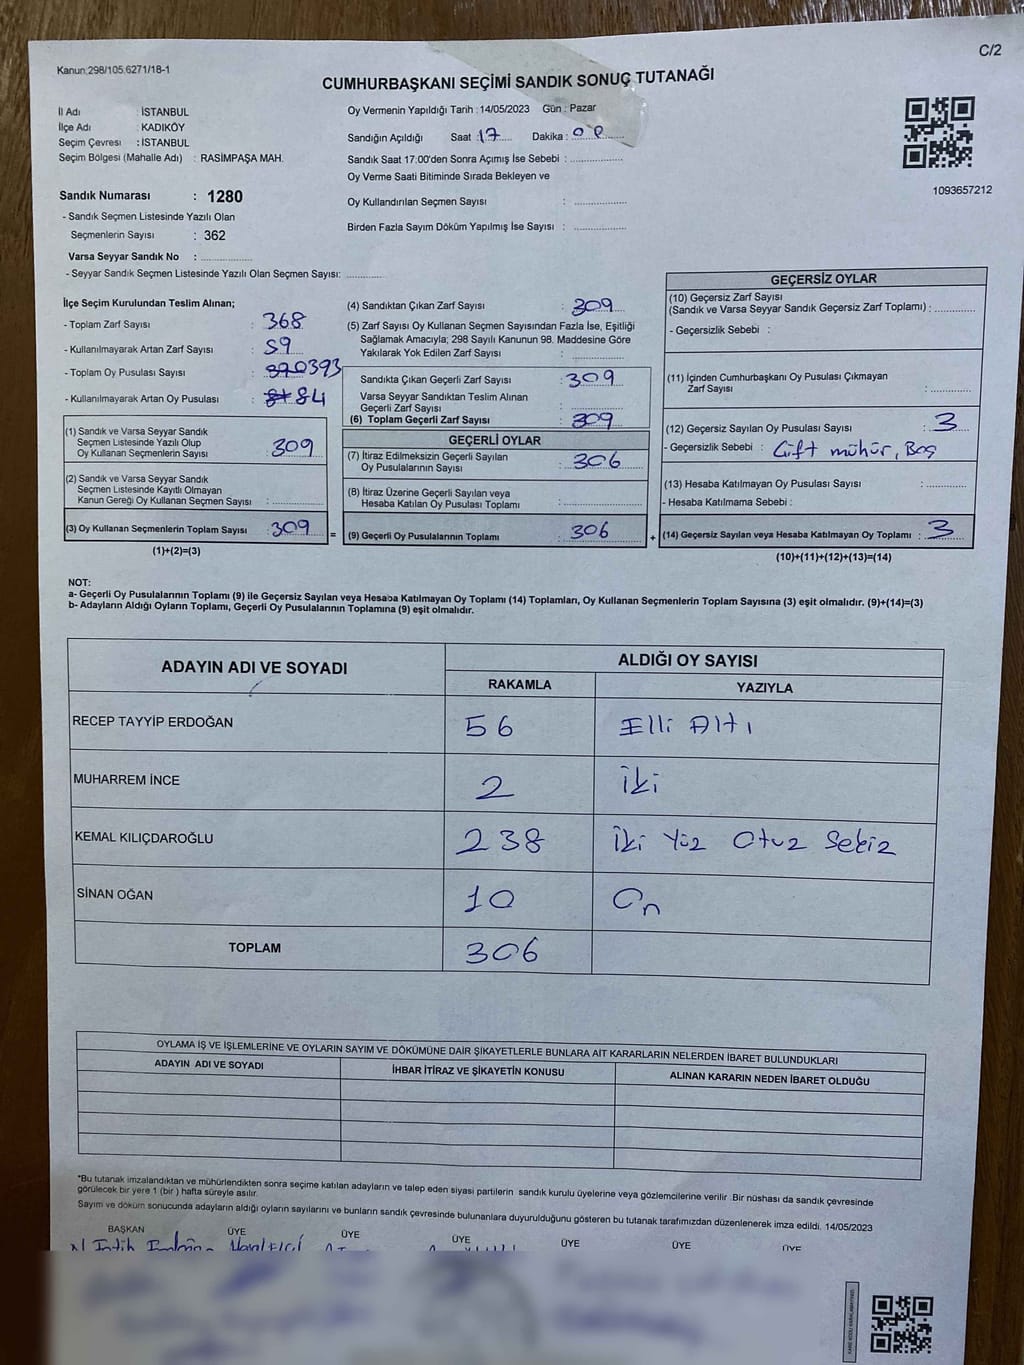 C/2
Kanun:298/105.6271/18-1
CUMHURBAŞKANI SEÇİMİ SANDIK SONUÇ TUTANAĞI
İl Adı : İSTANBUL
İlçe Adı : KADIKÖY
Seçim Çevresi : İSTANBUL
Seçim Bölgesi (Mahalle Adı) : RASİMPAŞA MAH.
Oy Vermenin Yapıldığı Tarih : 14/05/2023 Gün : Pazar
Sandığın Açıldığı Saat 17 Dakika :
Sandık Saat 17:00'den Sonra Açımış İse Sebebi :
Oy Verme Saati Bitiminde Sırada Bekleyen ve
Oy Kullandırılan Seçmen Sayısı :
Birden Fazla Sayım Döküm Yapılmış İse Sayısı :
1093657212
Sandık Numarası : 1280
- Sandık Seçmen Listesinde Yazılı Olan
Seçmenlerin Sayısı : 362
Varsa Seyyar Sandık No :
- Seyyar Sandık Seçmen Listesinde Yazılı Olan Seçmen Sayısı:
İlçe Seçim Kurulundan Teslim Alınan;
- Toplam Zarf Sayısı : 368
- Kullanılmayarak Artan Zarf Sayısı : 59
- Toplam Oy Pusulası Sayısı : 393
- Kullanılmayarak Artan Oy Pusulası : 84
(1) Sandık ve Varsa Seyyar Sandık
Seçmen Listesinde Yazılı Olup
Oy Kullanan Seçmenlerin Sayısı : 309
(2) Sandık ve Varsa Seyyar Sandık
Seçmen Listesinde Kayıtlı Olmayan
Kanun Gereği Oy Kullanan Seçmen Sayısı :
(3) Oy Kullanan Seçmenlerin Toplam Sayısı : 309
(1)+(2)=(3)
=
(4) Sandıktan Çıkan Zarf Sayısı : 309
(5) Zarf Sayısı Oy Kullanan Seçmen Sayısından Fazla İse, Eşitliği
Sağlamak Amacıyla; 298 Sayılı Kanunun 98. Maddesine Göre
Yakılarak Yok Edilen Zarf Sayısı :
Sandıkta Çıkan Geçerli Zarf Sayısı : 309
Varsa Seyyar Sandıktan Teslim Alınan
Geçerli Zarf Sayısı :
(6) Toplam Geçerli Zarf Sayısı : 309
GEÇERLİ OYLAR
(7) İtiraz Edilmeksizin Geçerli Sayılan
Oy Pusulalarının Sayısı : 306
(8) İtiraz Üzerine Geçerli Sayılan veya
Hesaba Katılan Oy Pusulası Toplamı :
(9) Geçerli Oy Pusulalarının Toplamı : 306
+
GEÇERSİZ OYLAR
(10) Geçersiz Zarf Sayısı
(Sandık ve Varsa Seyyar Sandık Geçersiz Zarf Toplamı) :
- Geçersizlik Sebebi :
(11) İçinden Cumhurbaşkanı Oy Pusulası Çıkmayan
Zarf Sayısı :
(12) Geçersiz Sayılan Oy Pusulası Sayısı : 3
- Geçersizlik Sebebi : Çift mühür, Boş
(13) Hesaba Katılmayan Oy Pusulası Sayısı :
- Hesaba Katılmama Sebebi :
(14) Geçersiz Sayılan veya Hesaba Katılmayan Oy Toplamı : 3
(10)+(11)+(12)+(13)=(14)
NOT:
a- Geçerli Oy Pusulalarının Toplamı (9) ile Geçersiz Sayılan veya Hesaba Katılmayan Oy Toplamı (14) Toplamları, Oy Kullanan Seçmenlerin Toplam Sayısına (3) eşit olmalıdır. (9)+(14)=(3)
b- Adayların Aldığı Oyların Toplamı, Geçerli Oy Pusulalarının Toplamına (9) eşit olmalıdır.
ADAYIN ADI VE SOYADI ALDIĞI OY SAYISI
RAKAMLA YAZIYLA
RECEP TAYYİP ERDOĞAN 56 Elli Altı
MUHARREM İNCE 2 İki
KEMAL KILIÇDAROĞLU 238 İki Yüz Otuz Sekiz
SİNAN OĞAN 10 On
TOPLAM 306
OYLAMA İŞ VE İŞLEMLERİNE VE OYLARIN SAYIM VE DÖKÜMÜNE DAİR ŞİKAYETLERLE BUNLARA AİT KARARLARIN NELERDEN İBARET BULUNDUKLARI
ADAYIN ADI VE SOYADI İHBAR İTİRAZ VE ŞİKAYETİN KONUSU ALINAN KARARIN NEDEN İBARET OLDUĞU
*Bu tutanak imzalandıktan ve mühürlendikten sonra seçime katılan adayların ve talep eden siyasi partilerin sandık kurulu üyelerine veya gözlemcilerine verilir. Bir nüshası da sandık çevresinde
görülecek bir yere 1 (bir ) hafta süreyle asılır.
Sayım ve döküm sonucunda adayların aldığı oyların sayılarını ve bunların sandık çevresinde bulunanlara duyurulduğunu gösteren bu tutanak tarafımızdan düzenlenerek imza edildi. 14/05/2023
BAŞKAN ÜYE ÜYE ÜYE ÜYE ÜYE ÜYE